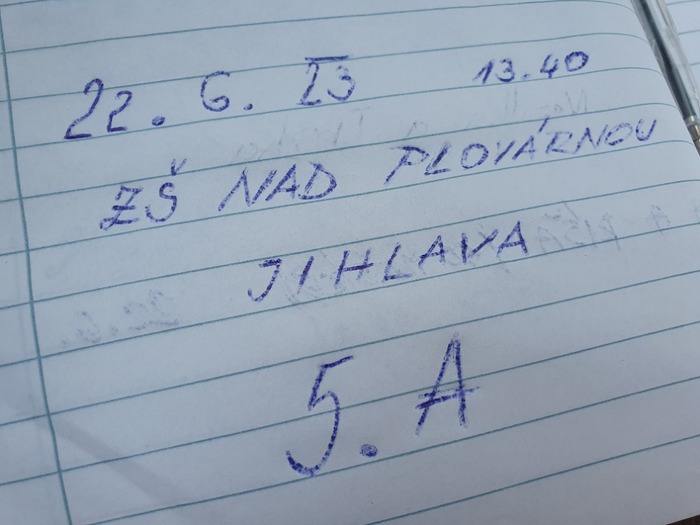 22. 6. 23 13.40
ZŠ NAD PLOVÁRNOU
JIHLAVA
5. A